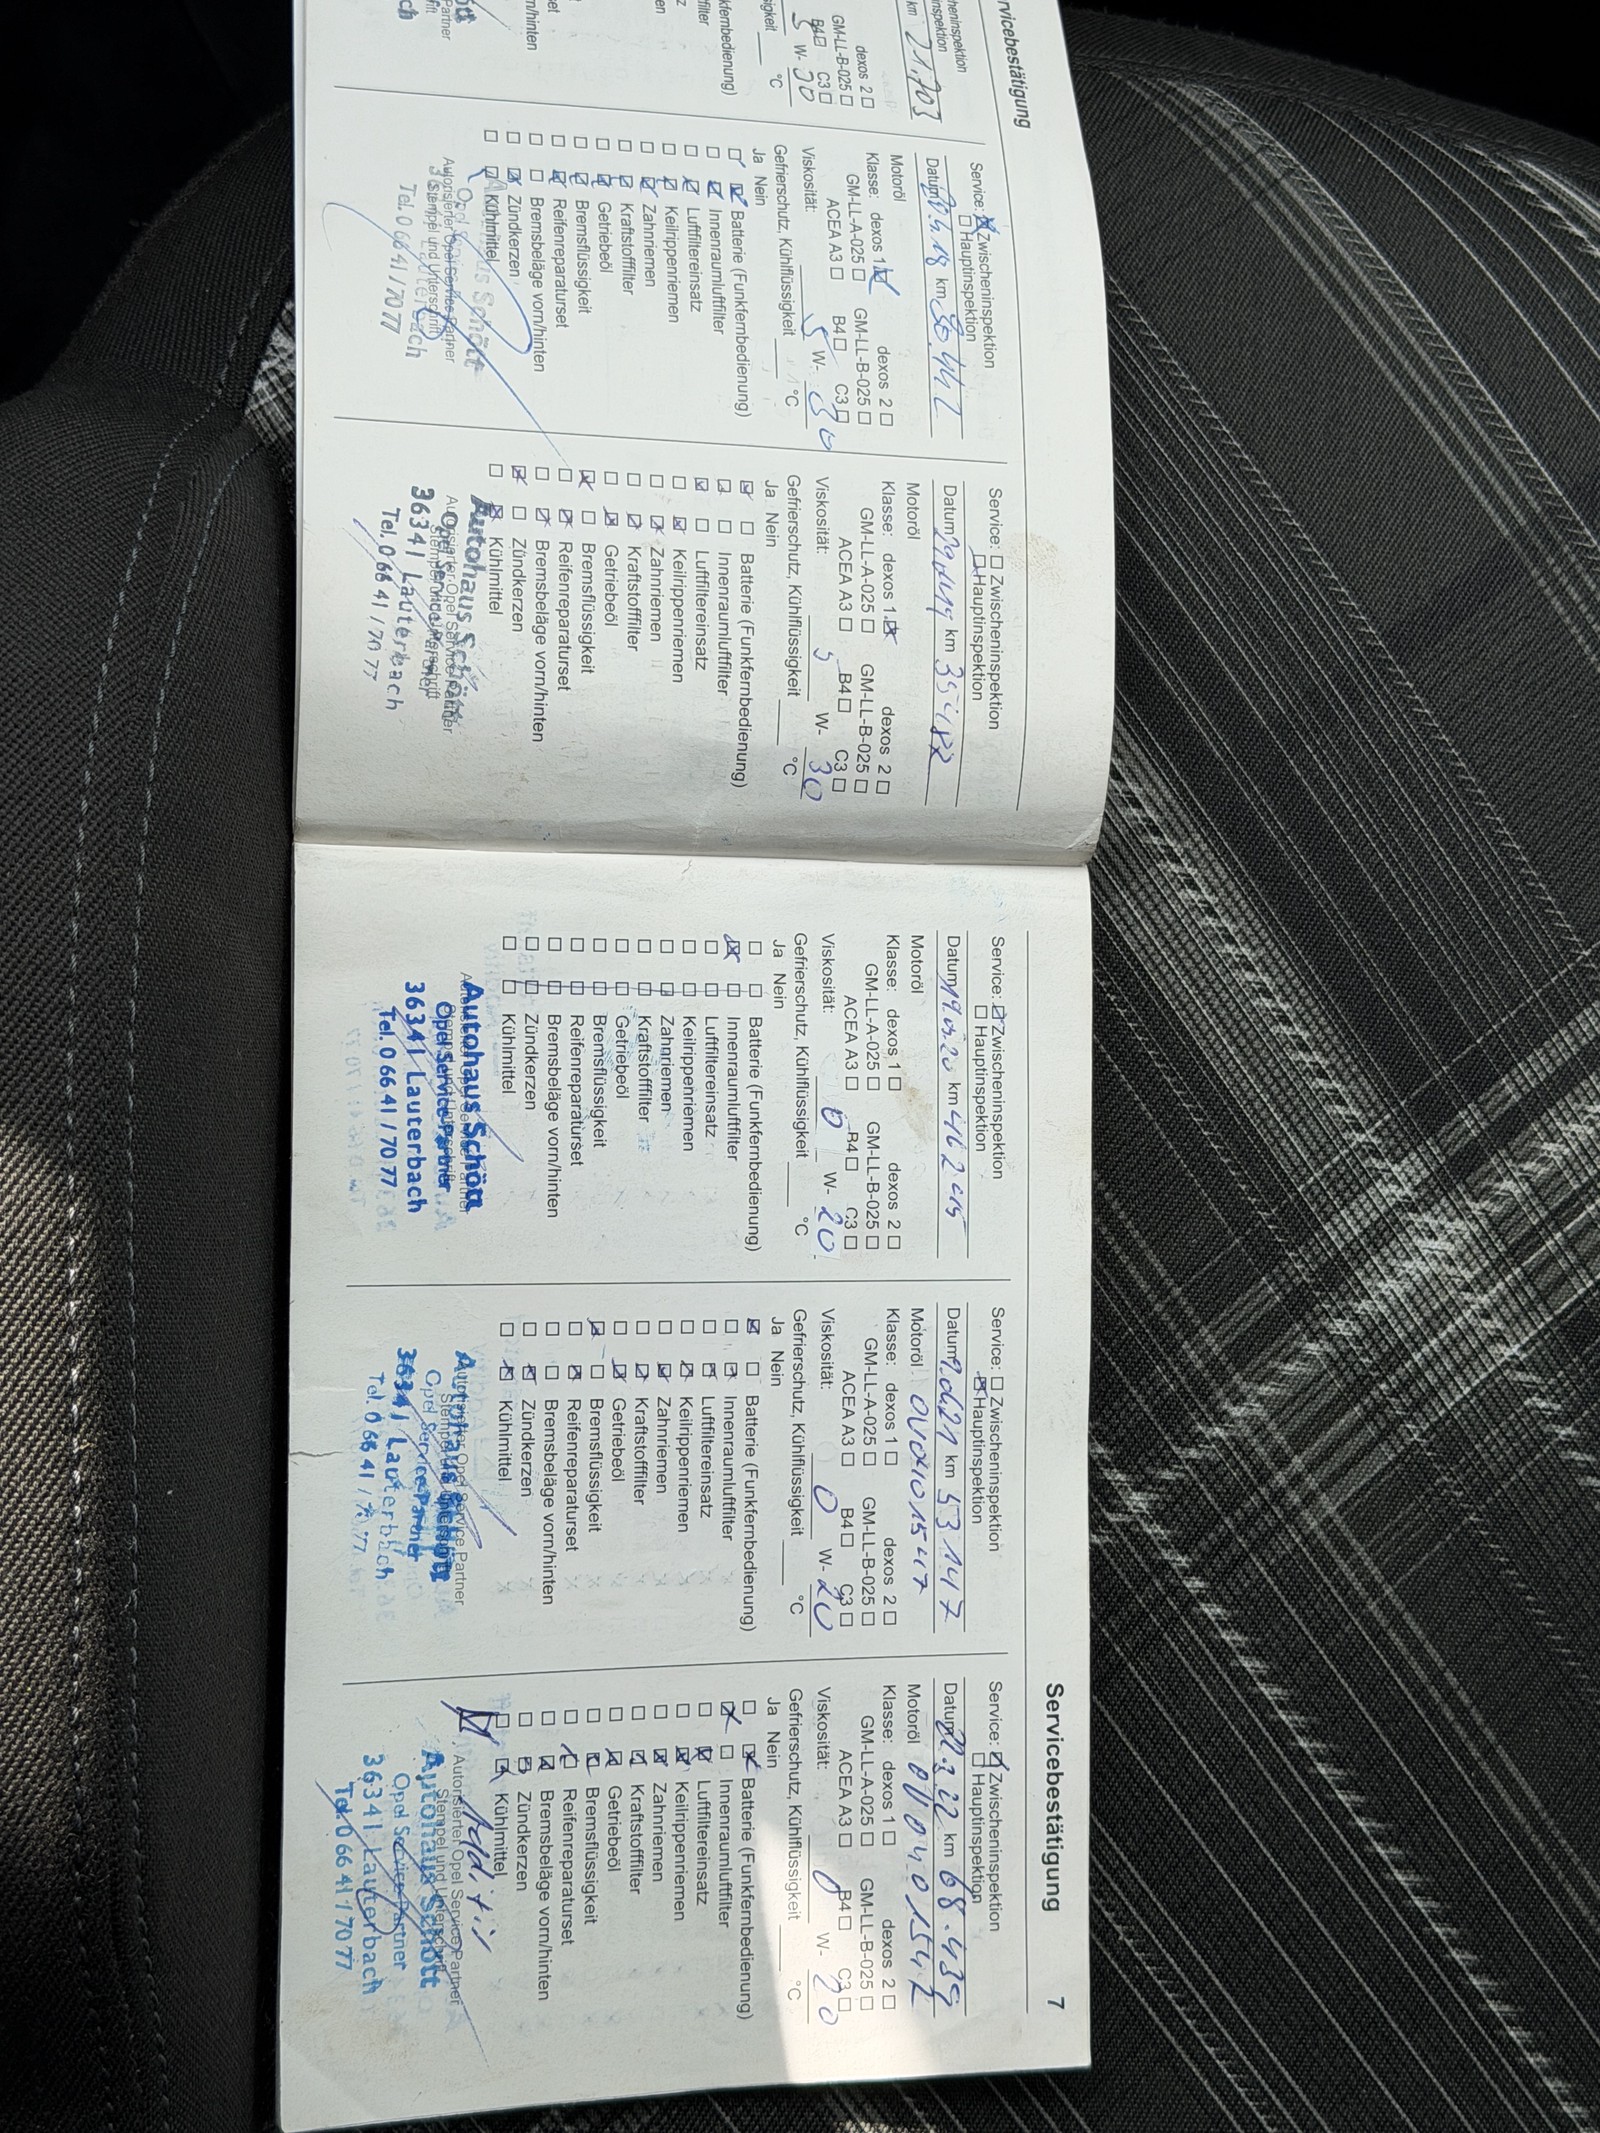 rvicebestätigung
heninspektion
inspektion
km 21.703
dexos 2 ☐
GM-LL-B-025 ☐
B4☐ C3☐
5 W- 30
sigkeit ____ °C
kfernbedienung)
filter
z
en
et
n/hinten
Partner
ift
ch
Service: ☒ Zwischeninspektion
☐ Hauptinspektion
Datum km
Motoröl
Klasse: dexos 1 ☑ dexos 2 ☐
GM-LL-A-025 ☐ GM-LL-B-025 ☐
ACEA A3 ☐ B4 ☐ C3 ☐
Viskosität: 5 W- 30
Gefrierschutz, Kühlflüssigkeit ____ °C
Ja Nein
Batterie (Funkfernbedienung)
Innenraumluftfilter
Luftfiltereinsatz
Keilrippenriemen
Zahnriemen
Kraftstofffilter
Getriebeöl
Bremsflüssigkeit
Reifenreparaturset
Bremsbeläge vorn/hinten
Zündkerzen
Kühlmittel
Autorisierter Opel Service Partner
Stempel und Unterschrift
Tel. 0 66 41 / 70 77
Service: ☐ Zwischeninspektion
☐ Hauptinspektion
Datum km 35482
Motoröl
Klasse: dexos 1 ☒ dexos 2 ☐
GM-LL-A-025 ☐ GM-LL-B-025 ☐
ACEA A3 ☐ B4 ☐ C3 ☐
Viskosität: 5 W- 30
Gefrierschutz, Kühlflüssigkeit ____ °C
Ja Nein
Batterie (Funkfernbedienung)
Innenraumluftfilter
Luftfiltereinsatz
Keilrippenriemen
Zahnriemen
Kraftstofffilter
Getriebeöl
Bremsflüssigkeit
Reifenreparaturset
Bremsbeläge vorn/hinten
Zündkerzen
Kühlmittel
Autohaus Schött
Opel Service Partner
36341 Lauterbach
Tel. 0 66 41 / 70 77
Servicebestätigung 7
Service: ☒ Zwischeninspektion
☐ Hauptinspektion
Datum km
Motoröl
Klasse: dexos 1 ☐ dexos 2 ☐
GM-LL-A-025 ☐ GM-LL-B-025 ☐
ACEA A3 ☐ B4 ☐ C3 ☐
Viskosität: 0 W- 20
Gefrierschutz, Kühlflüssigkeit ____ °C
Ja Nein
Batterie (Funkfernbedienung)
Innenraumluftfilter
Luftfiltereinsatz
Keilrippenriemen
Zahnriemen
Kraftstofffilter
Getriebeöl
Bremsflüssigkeit
Reifenreparaturset
Bremsbeläge vorn/hinten
Zündkerzen
Kühlmittel
Autohaus Schött
Opel Service Partner
36341 Lauterbach
Tel. 0 66 41 / 70 77
Service: ☐ Zwischeninspektion
☒ Hauptinspektion
Datum km 53147
Motoröl OV0401547
Klasse: dexos 1 ☐ dexos 2 ☐
GM-LL-A-025 ☐ GM-LL-B-025 ☐
ACEA A3 ☐ B4 ☐ C3 ☐
Viskosität: 0 W- 20
Gefrierschutz, Kühlflüssigkeit ____ °C
Ja Nein
Batterie (Funkfernbedienung)
Innenraumluftfilter
Luftfiltereinsatz
Keilrippenriemen
Zahnriemen
Kraftstofffilter
Getriebeöl
Bremsflüssigkeit
Reifenreparaturset
Bremsbeläge vorn/hinten
Zündkerzen
Kühlmittel
Opel Service Partner
36341 Lauterbach
Tel. 0 66 41 / 70 77
Service: ☒ Zwischeninspektion
☐ Hauptinspektion
Datum km 68.439
Motoröl
Klasse: dexos 1 ☐ dexos 2 ☐
GM-LL-A-025 ☐ GM-LL-B-025 ☐
ACEA A3 ☐ B4 ☐ C3 ☐
Viskosität: 0 W- 20
Gefrierschutz, Kühlflüssigkeit ____ °C
Ja Nein
Batterie (Funkfernbedienung)
Innenraumluftfilter
Luftfiltereinsatz
Keilrippenriemen
Zahnriemen
Kraftstofffilter
Getriebeöl
Bremsflüssigkeit
Reifenreparaturset
Bremsbeläge vorn/hinten
Zündkerzen
Kühlmittel
Additiv
Autorisierter Opel Service Partner
Stempel und Unterschrift
Autohaus Schött
Opel Service Partner
36341 Lauterbach
Tel. 0 66 41 / 70 77